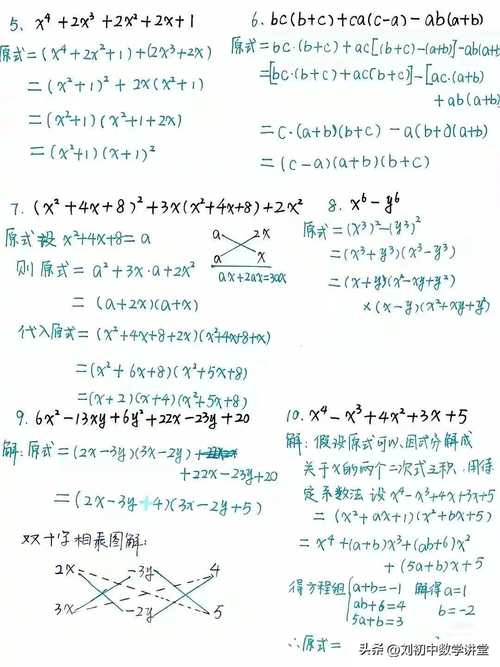 5. x⁴+2x³+2x²+2x+1
原式=(x⁴+2x²+1)+(2x³+2x)
=(x²+1)²+2x(x²+1)
=(x²+1)(x²+1+2x)
=(x²+1)(x+1)²
6. bc(b+c)+ca(c-a)-ab(a+b)
原式=bc·(b+c)+ac[(b+c)-(a+b)]-ab(a+b)
=[bc·(b+c)+ac(b+c)]-[ac·(a+b)
+ab(a+b)
=c·(a+b)(b+c)-a(b+c)(a+b)
=(c-a)(a+b)(b+c)
7. (x²+4x+8)²+3x(x²+4x+8)+2x²
原式 设 x²+4x+8=a
则 原式=a²+3x·a+2x²
=(a+2x)(a+x)
代入原式=(x²+4x+8+2x)(x²+4x+8+x)
=(x²+6x+8)(x²+5x+8)
=(x+2)(x+4)(x²+5x+8)
a 2x
a x
ax+2ax=3ax
8. x⁶-y⁶
原式=(x³)²-(y³)²
=(x³+y³)(x³-y³)
=(x+y)(x²-xy+y²)
×(x-y)(x²+xy+y²)
9. 6x²-13xy+6y²+22x-23y+20
解:原式=(2x-3y)(3x-2y)
+22x-23y+20
=(2x-3y+4)(3x-2y+5)
双十字相乘图解:
2x -3y 4
3x -2y 5
10. x⁴-x³+4x²+3x+5
解:假设原式可以因式分解成
关于x的两个二次式之积,用待
定系数法 设x⁴-x³+4x²+3x+5
=(x²+ax+1)(x²+bx+5)
=x⁴+(a+b)x³+(ab+6)x²
+(5a+b)x+5
得方程组 a+b=-1 解得a=1
ab+6=4 b=-2
5a+b=3
∴原式=
头条 @刘初中数学讲堂